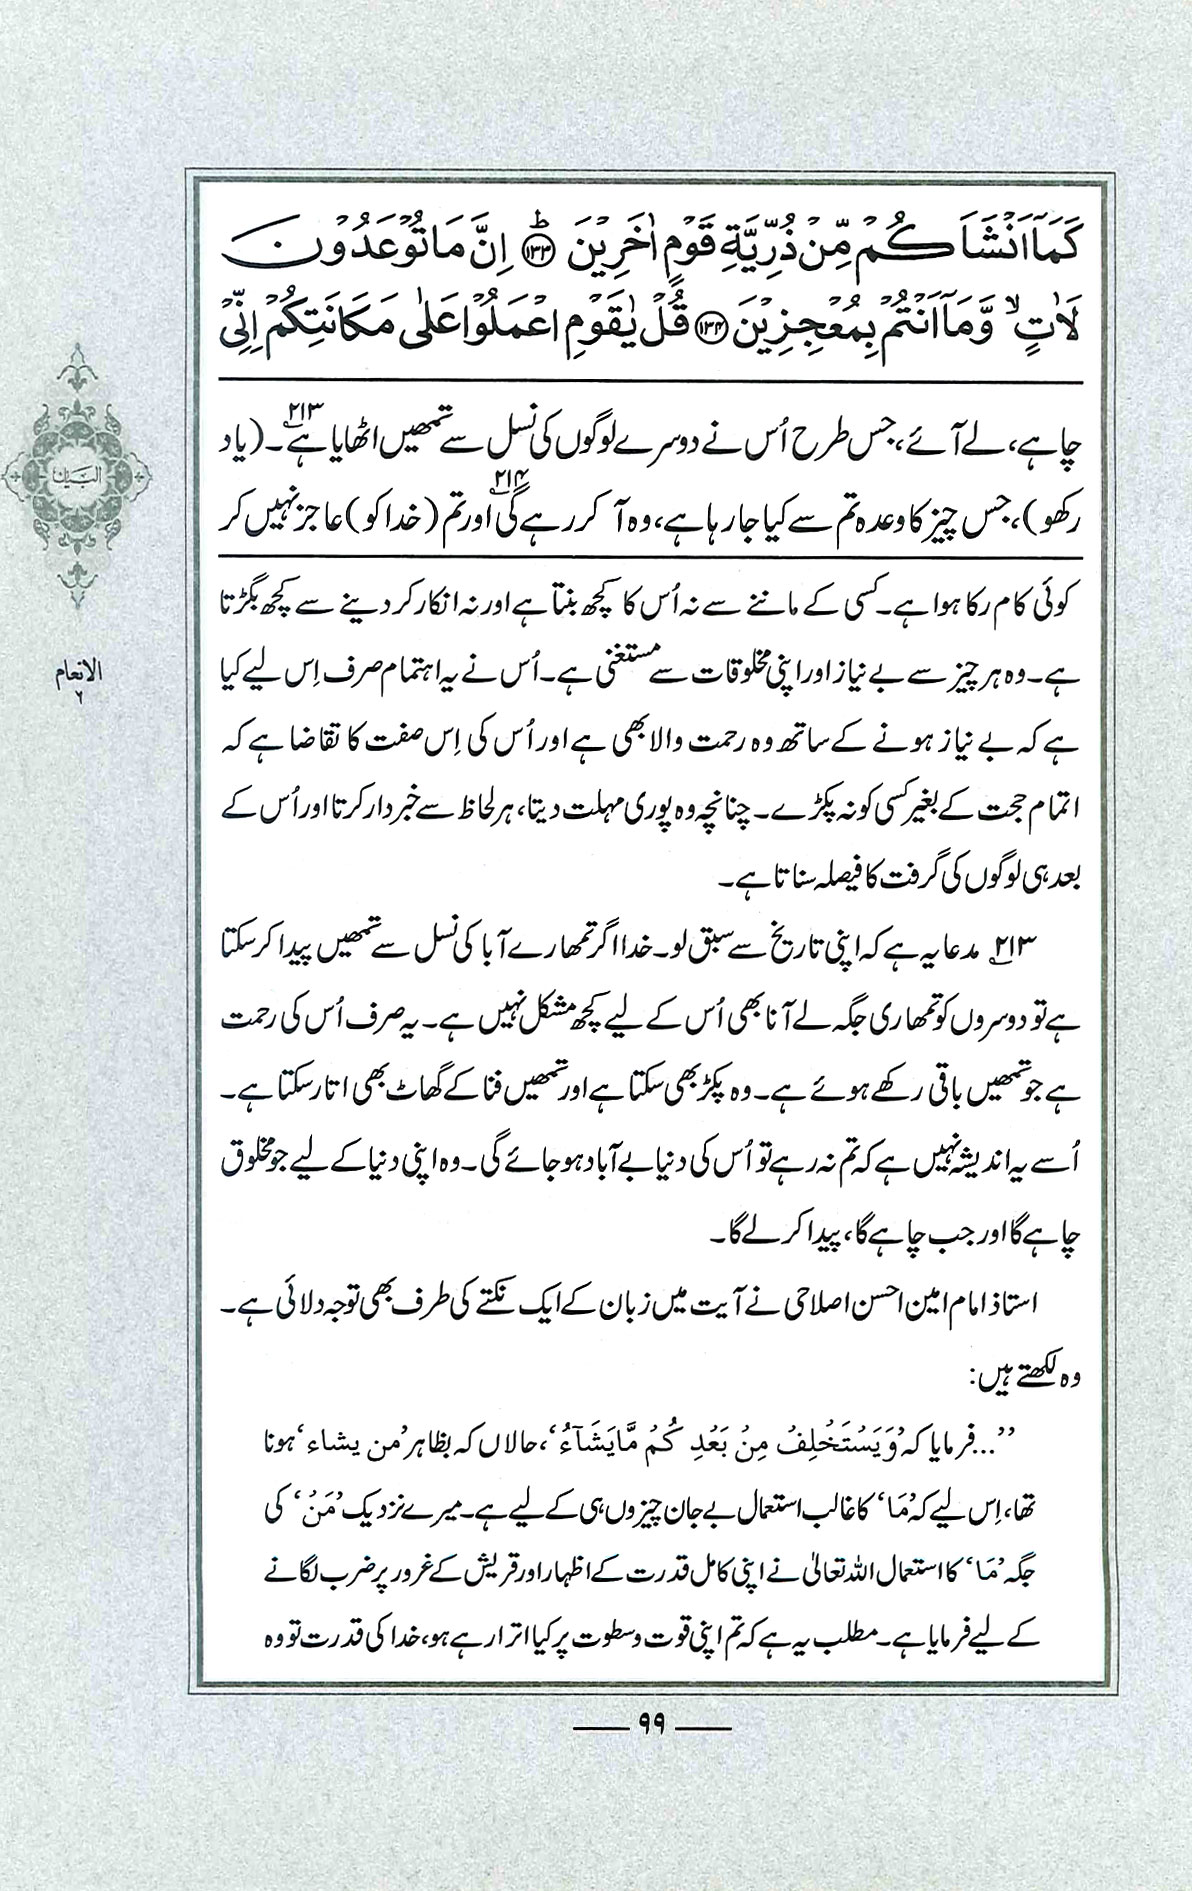 كَمَآ اَنْشَاَكُمْ مِّنْ ذُرِّيَّةِ قَوْمٍ اٰخَرِيْنَ ﴿۱۳۳﴾ اِنَّ مَا تُوْعَدُوْنَ
لَاٰتٍ ۙ وَّمَآ اَنْتُمْ بِمُعْجِزِيْنَ ﴿۱۳۴﴾ قُلْ يٰقَوْمِ اعْمَلُوْا عَلٰى مَكَانَتِكُمْ اِنِّيْ
چاہے، لے آئے، جس طرح اُس نے دوسرے لوگوں کی نسل سے تمھیں اٹھایا ہے۲۱۳۔ (یاد
رکھو)، جس چیز کا وعدہ تم سے کیا جا رہا ہے، وہ آ کر رہے گی۲۱۴ اور تم (خدا کو) عاجز نہیں کر
کوئی کام رکا ہوا ہے۔ کسی کے ماننے سے نہ اُس کا کچھ بنتا ہے اور نہ انکار کر دینے سے کچھ بگڑتا
ہے۔ وہ ہر چیز سے بے نیاز اور اپنی مخلوقات سے مستغنی ہے۔ اُس نے یہ اہتمام صرف اِس لیے کیا
ہے کہ بے نیاز ہونے کے ساتھ وہ رحمت والا بھی ہے اور اُس کی اِس صفت کا تقاضا ہے کہ
اتمام حجت کے بغیر کسی کو نہ پکڑے۔ چنانچہ وہ پوری مہلت دیتا، ہر لحاظ سے خبردار کرتا اور اُس کے
بعد ہی لوگوں کی گرفت کا فیصلہ سناتا ہے۔
۲۱۳ مدعا یہ ہے کہ اپنی تاریخ سے سبق لو۔ خدا اگر تمھارے آبا کی نسل سے تمھیں پیدا کر سکتا
ہے تو دوسروں کو تمھاری جگہ لے آنا بھی اُس کے لیے کچھ مشکل نہیں ہے۔ یہ صرف اُس کی رحمت
ہے جو تمھیں باقی رکھے ہوئے ہے۔ وہ پکڑ بھی سکتا ہے اور تمھیں فنا کے گھاٹ بھی اتار سکتا ہے۔
اُسے یہ اندیشہ نہیں ہے کہ تم نہ رہے تو اُس کی دنیا بے آباد ہو جائے گی۔ وہ اپنی دنیا کے لیے جو مخلوق
چاہے گا اور جب چاہے گا، پیدا کر لے گا۔
استاذ امام امین احسن اصلاحی نے آیت میں زبان کے ایک نکتے کی طرف بھی توجہ دلائی ہے۔
وہ لکھتے ہیں:
”...فرمایا کہ ’وَيَسْتَخْلِفْ مِنْۢ بَعْدِكُمْ مَّا يَشَآءُ‘، حالاں کہ بظاہر ’من یشاء‘ ہونا
تھا، اِس لیے کہ ’مَا‘ کا غالب استعمال بے جان چیزوں ہی کے لیے ہے۔ میرے نزدیک ’مَنْ‘ کی
جگہ ’مَا‘ کا استعمال اللہ تعالیٰ نے اپنی کامل قدرت کے اظہار اور قریش کے غرور پر ضرب لگانے
کے لیے فرمایا ہے۔ مطلب یہ ہے کہ تم اپنی قوت و سطوت پر کیا اترا رہے ہو، خدا کی قدرت تو وہ
البیان
الانعام
۶
۹۹